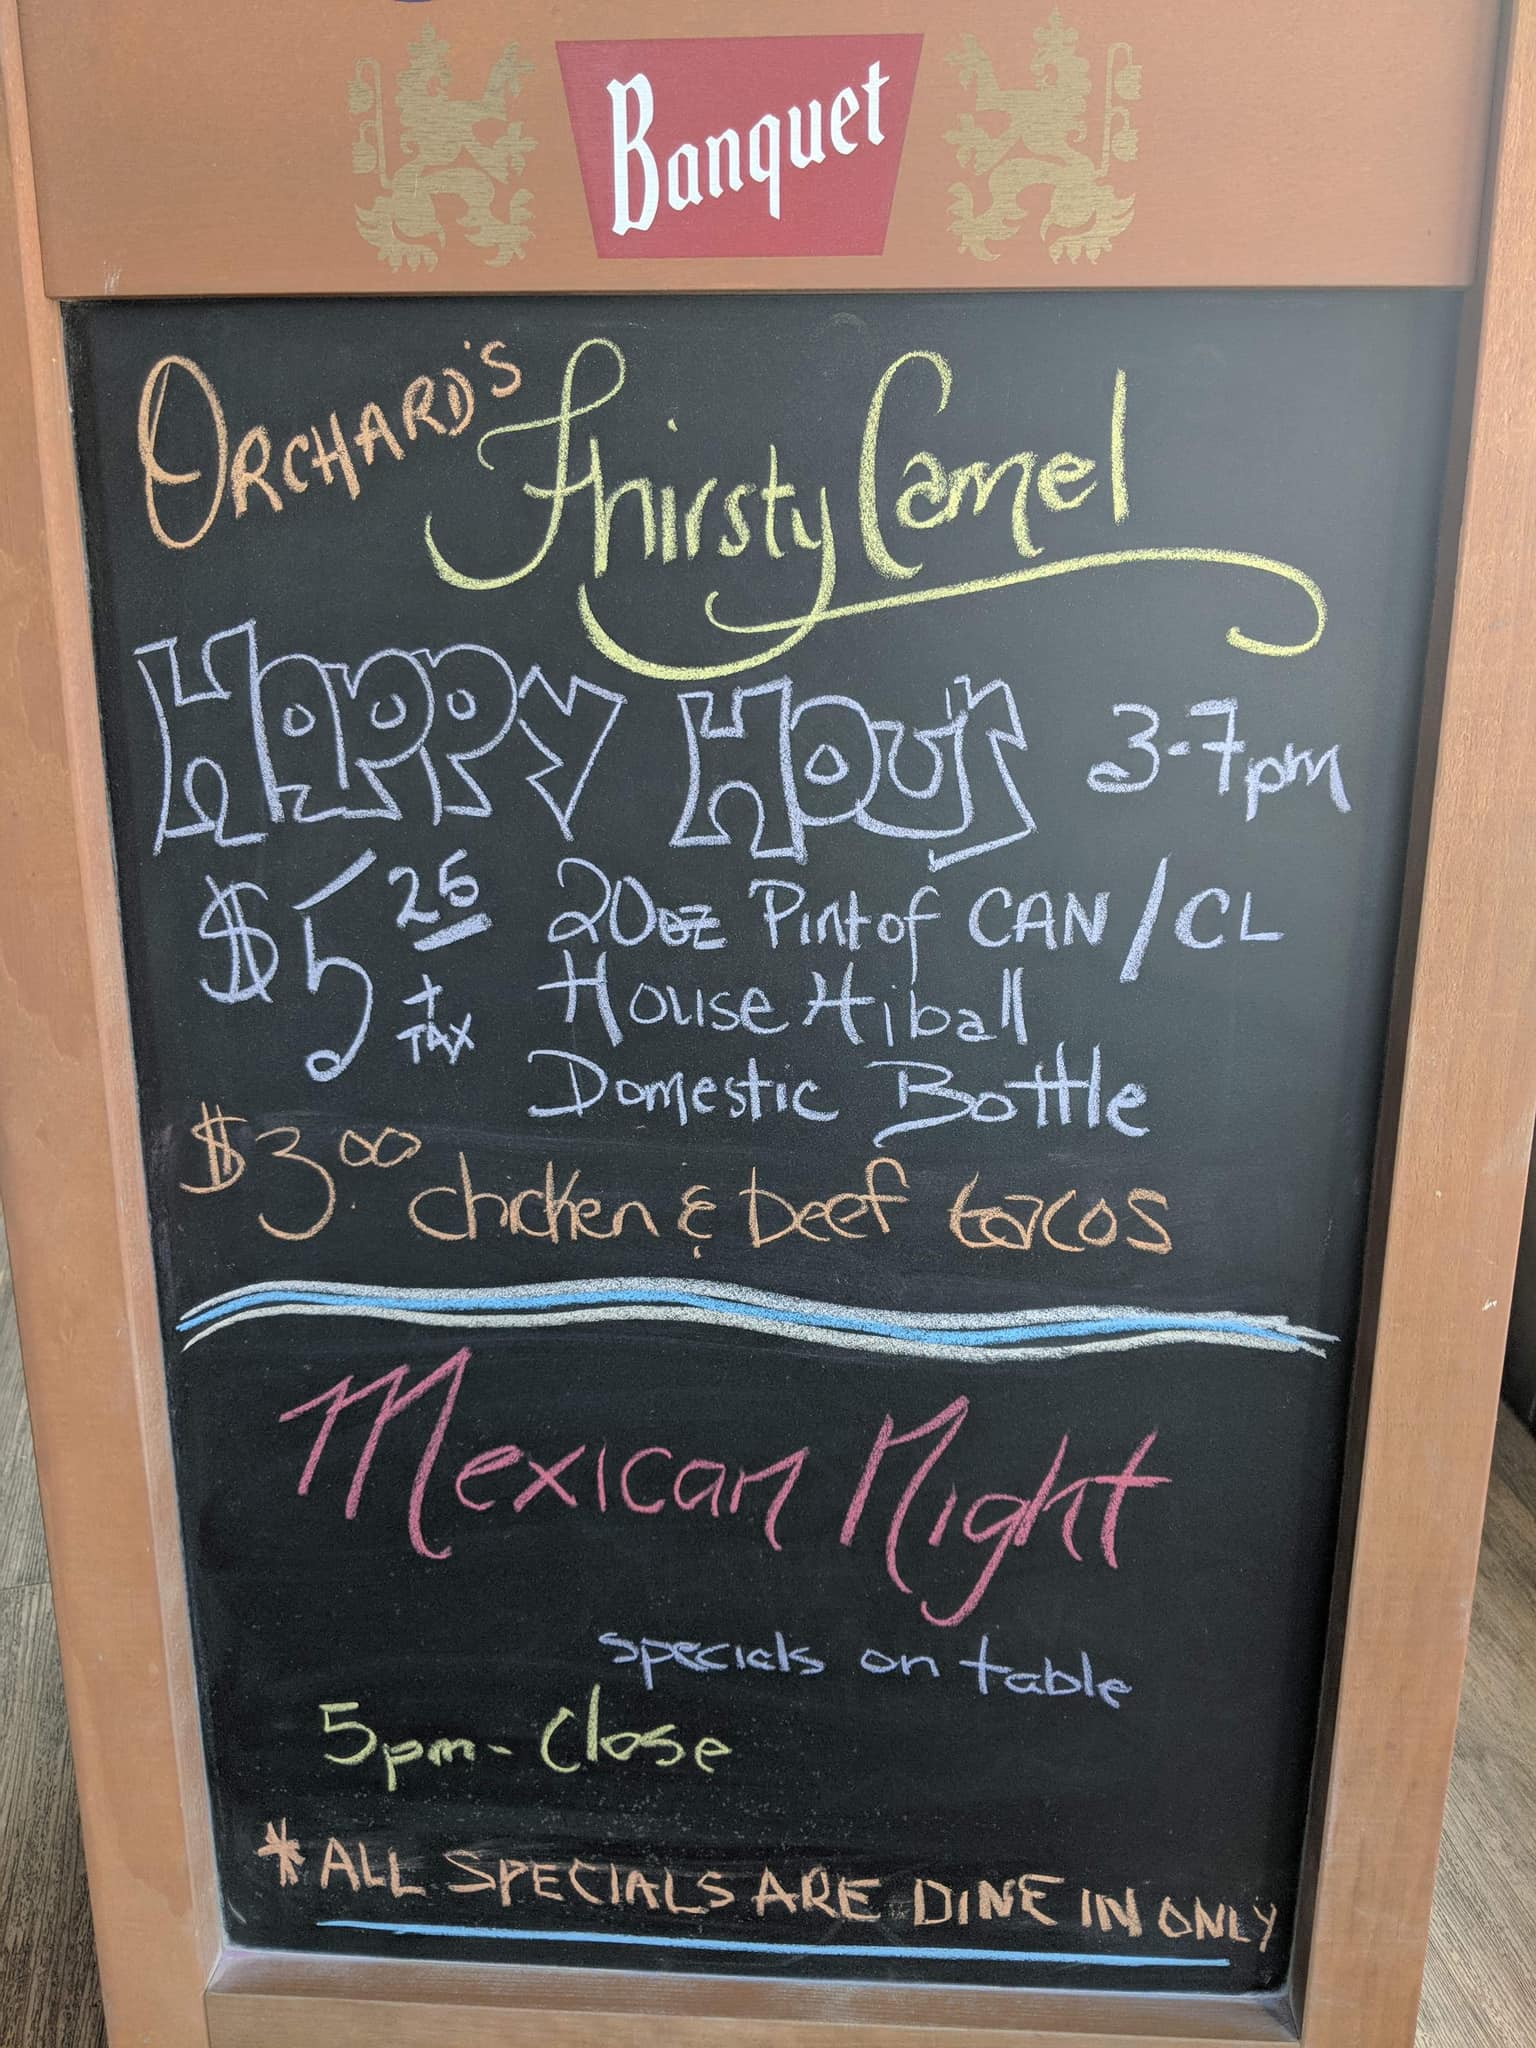 Banquet
ORCHARD'S Thirsty Camel
Happy Hour 3-7pm
$5.25 + TAX 20oz Pint of CAN/CL
House Hiball
Domestic Bottle
$3.00 chicken & beef tacos
Mexican Night
specials on table
5pm - Close
*ALL SPECIALS ARE DINE IN ONLY